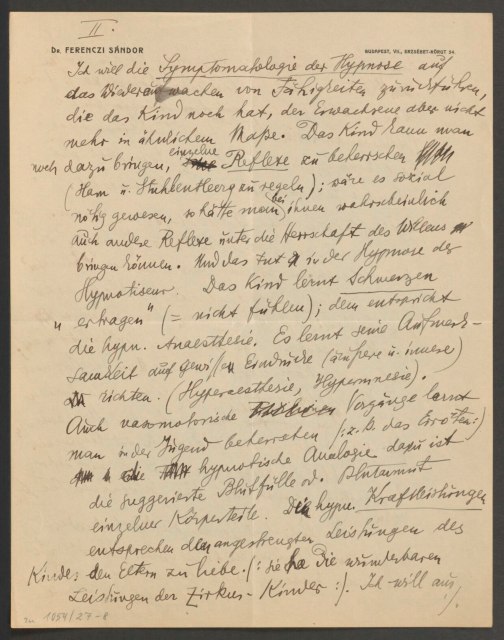 II.
Dr. FERENCZI SÁNDOR
BUDAPEST, VII., ERZSÉBET-KÖRÚT 54.
Ich will die Symptomatologie der Hypnose auf
das Wiederaufwachen von Fähigkeiten zurückführen,
die das Kind noch hat, der Erwachsene aber nicht
mehr in ähnlichem Maße. Das Kind kann man
noch dazu bringen, einzelne Reflexe zu beherrschen
(Harn u. Stuhlentleerg zu regeln); wäre es sozial
nötig gewesen, so hätte man bei ihnen wahrscheinlich
auch andere Reflexe unter die Herrschaft des Willens
bringen können. Und das tut in der Hypnose der
Hypnotiseur. Das Kind lernt Schmerzen
"ertragen" (= nicht fühlen); dem entspricht
die hypn. Anaesthesie. Es lernt seine Aufmerk-
samkeit auf gewisse Eindrücke (äußere u. innere)
richten. (Hyperaesthesie, Hypermnesie).
Auch vasomotorische Vorgänge lernt
man in der Jugend beherrschen /:z.B. das Erröten:/
hypnotische Analogie dazu ist
die suggerierte Blutfülle od. Blutarmut
einzelner Körperteile. Die hypn. Kraftleistungen
entsprechen den angestrengten Leistungen des
Kindes den Eltern zu liebe. (: siehe die wunderbaren
Leistungen der Zirkus-Kinder :). Ich will auch
1054/27-8